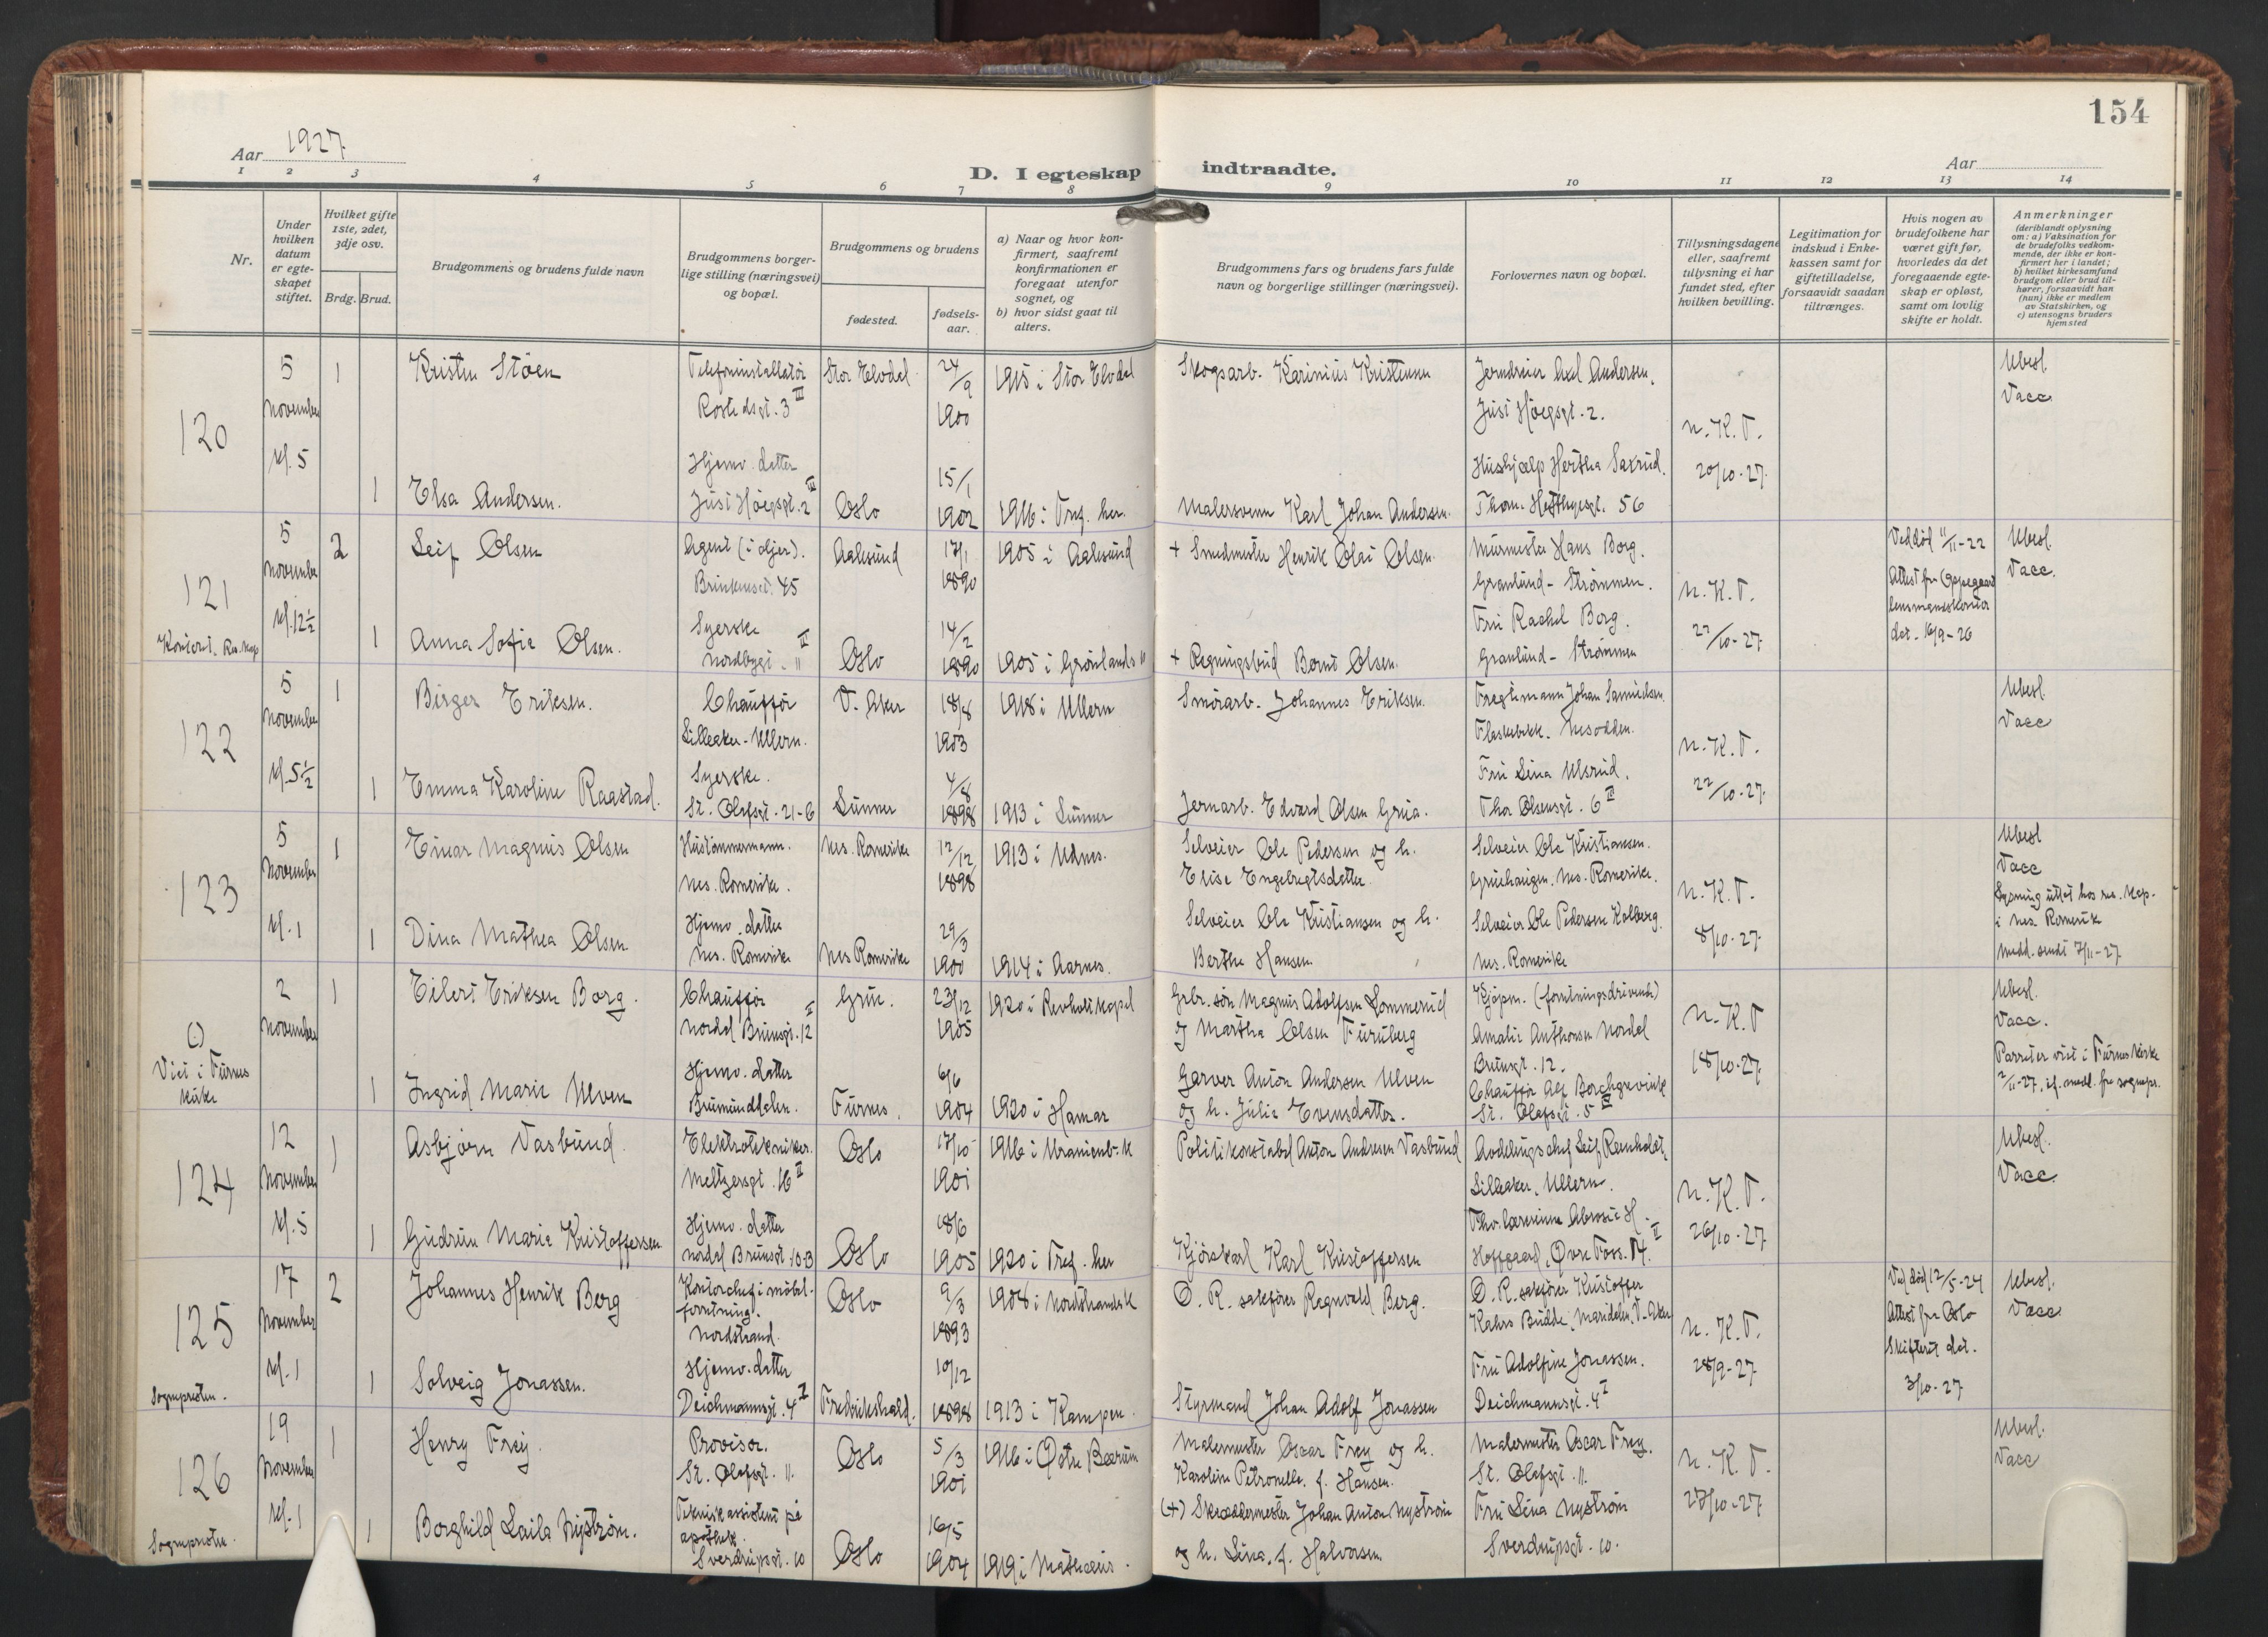 154
Aar 1927
Aar
D. I egteskap indtraadte.
1 2 3 4 5 6 7 8 9 10 11 12 13 14
Nr.
Under hvilken datum er egteskapet stiftet.
Hvilket gifte 1ste, 2det, 3dje osv.
Brdg. Brud.
Brudgommens og brudens fulde navn
Brudgommens borgerlige stilling (næringsvei) og bopæl.
Brudgommens og brudens
fødested.
fødselsaar.
a) Naar og hvor konfirmert, saafremt konfirmationen er foregaat utenfor sognet, og
b) hvor sidst gaat til alters.
Brudgommens fars og brudens fars fulde navn og borgerlige stillinger (næringsvei).
Forlovernes navn og bopæl.
Tillysningsdagene eller, saafremt tillysning ei har fundet sted, efter hvilken bevilling.
Legitimation for indskud i Enkekassen samt for giftetilladelse, forsaavidt saadan tiltrænges.
Hvis nogen av brudefolkene har været gift før, hvorledes da det foregaaende egteskap er opløst, samt om lovlig skifte er holdt.
Anmerkninger (deriblandt oplysning om: a) Vaksination for de brudefolks vedkommende, der ikke er konfirmert her i landet; b) hvilket kirkesamfund brudgom eller brud tilhører, forsaavidt han (hun) ikke er medlem av Statskirken, og c) utensogns bruders hjemsted
120
5 november kl. 5
1 Kristen Støen
Telefoninstallatør
Rostedsgt. 3 III
Stor Elvdal
24/9 1900
1915 i Stor Elvdal
Skogsarb. Karinius Kristensen
Jerndreier Axel Andersen,
Just Høegsgt. 2.
n. K. T.
20/10-27.
Ubesl.
Vacc.
1 Elsa Andersen.
Hjemv. datter
Just Høegsgt. 2 III
Oslo
15/1 1902
1916 i Tref. her.
Malersvenn Karl Johan Andersen.
Hushjælp Hertha Saxrud.
Thom. Hefthyesgt. 56
121
5 november kl. 12½
2 Leif Olsen
Agent (i oljer).
45
Aalesund
17/1 1890
1905 i Aalesund
+ Smedmester Henrik Olai Olsen.
Murmester Hans Borg.
Granlund - Strømmen.
n. K. T.
22/10-27.
Ved død 11/11-22
Attest fra Oppegaard
lensmannskontor
dat. 16/9-26
Ubesl.
Vacc.
1 Anna Sofie Olsen.
Syerske
Nordbygt. 11 II
Oslo
14/2 1890
1905 i Grønlands "
+ Regningsbud Bernt Olsen.
Fru Rachel Borg.
Granlund - Strømmen
122
5 november kl. 5½
1 Birger Eriksen.
Chauffør
Lilleaker - Ullern.
V. Aker
18/8 1903
1918 i Ullern
Smørarb. Johannes Eriksen.
Fregtmann Johan Samuelsen.
Flaskebekk. Nesodden.
n. K. T.
22/10-27.
Ubesl.
Vacc
1 Emma Karoline Raastad.
Syerske.
St. Olafsgt. 21-6
Lunner
4/8 1898
1913 i Lunner
Jernarb. Edvard Olsen Grua.
Fru Lina Ulsrud.
Thor Olsensgt. 6 II
123
5 November kl. 1
1 Einar Magnus Olsen
Hustømmermann.
Nes. Romerike.
Nes. Romerike
12/12 1898
1913 i Udnes.
Selveier Ole Pedersen og h.
Elise Engebregtsdatter.
Selveier Ole Kristiansen.
Gruehaugen. Nes. Romerike.
n. K. T.
8/10-27.
Ubesl
Vacc
Lysning uttat hos res. kap.
i Nes. Romerik
medd. sendt 7/11-27.
1 Dina Mathea Olsen
Hjemv. datter
Nes. Romerike
Nes Romerike
29/3 1900
1914 i Aarnes.
Selveier Ole Kristiansen og h.
Berthe Hansen
Selveier Ole Pedersen Kolberg.
Nes. Romerike
(-)
Viet i Furnes kirke
2 november
1 Eilert Eriksen Borg.
Chauffør
Nordal Brunsgt. 12 II
Grue.
23/12 1905
1920 i Revholt kapel
Grbr. søn Magnus Adolfsen Lommerud
og Martha Olsen Furuberg
Kjøpm. (forretningsdrivende)
Amalie Anthonsen Nordal
Brunsgt. 12.
n. K. T
18/10-27.
Ubesl.
Vacc.
Parret er viet i Furnes kirke
2/11-27, if. medd. fra sognepr.
1 Ingrid Marie Ulven
Hjemv. datter
Brumunddalen.
Furnes.
6/6 1904
1920 i Hamar
Garver Anton Andersen Ulven
og h. Julie Evensdatter.
Chauffør Alf Borchgrevink
St. Olafsgt. 5
124
12 November kl. 5
1 Asbjørn Vasbund.
Elektrotekniker.
Meltzersgt. 16 II
Oslo
17/10 1901
1916 i Uranienb. k
Politikonstabel Anton Andresen Vasbund
Avdelingschef Leif Reinholdt,
Lilleaker, Ullern.
n. K. T.
26/10-27.
Ubesl.
Vacc.
1 Gudrun Marie Kristoffersen
Hjemv. datter
Nordal Brunsgt. 10-3
Oslo
18/6 1905
1920 i Tref. her
Kjørekarl Karl Kristoffersen
Hoffgaard, Øvre Foss. 14. II
125
Sognepresten.
17 November kl. 1
2 Johannes Henrik Berg
Kontorchef i møbel-
forretning.
Nordstrand.
Oslo
9/3 1893
1908 i Nordstrandsk
O. R. sakfører Ragnvald Berg.
O. R. sakfører Kristoffer
Kahrs Budde, Maridalen, V. Aker
n. K. T.
28/9-27.
Ved død 12/5-24
Attest fra Oslo
Skifterett dat.
3/10-27.
Ubesl.
Vacc.
1 Solveig Jonassen.
Hjemv. datter
Deichmannsgt. 4 I
Fredrikshald.
10/12 1898
1913 i Kampen.
Styrmand Johan Adolf Jonassen
Fru Adolfine Jonassen.
Deichmannsgt. 4 I
126
Sognepresten.
19 November kl. 1
1 Henry Frey.
Provisor.
St. Olafsgt. 11.
Oslo
5/3 1901
1916 i Østre Bærum
Malermester Oscar Frey og h.
Karoline Petronelle, f. Hansen.
Malermester Oscar Frey.
St. Olafsgt. 11.
n. K. T.
27/10-27.
Ubesl.
Vacc
1 Borghild Laila Nystrøm.
Teknisk assistent på
apothek.
Sverdrupsgt. 10
Oslo
16/5 1904
1919 i Mathæus.
(+) Skræddermester Johan Anton Nystrøm
og h. Lina, f. Halvorsen.
Fru Lina Nystrøm
Sverdrupsgt. 10.